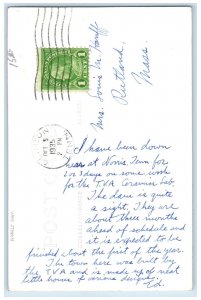 15¢
1 CENT 1
OCT 3
1935
PM
Mrs. Louis M. Hanff
Rutland,
Mass.
I have been down
here at Norris, Tenn for
2 or 3 days on some work
for the TVA Ceramic Lab.
The dam is quite
a sight. They are
about three months
ahead of schedule and
it is expected to be
finished about the first of the year.
The town here was built by
the TVA and is made up of neat
little houses of various designs.
Ed.
POST CARD